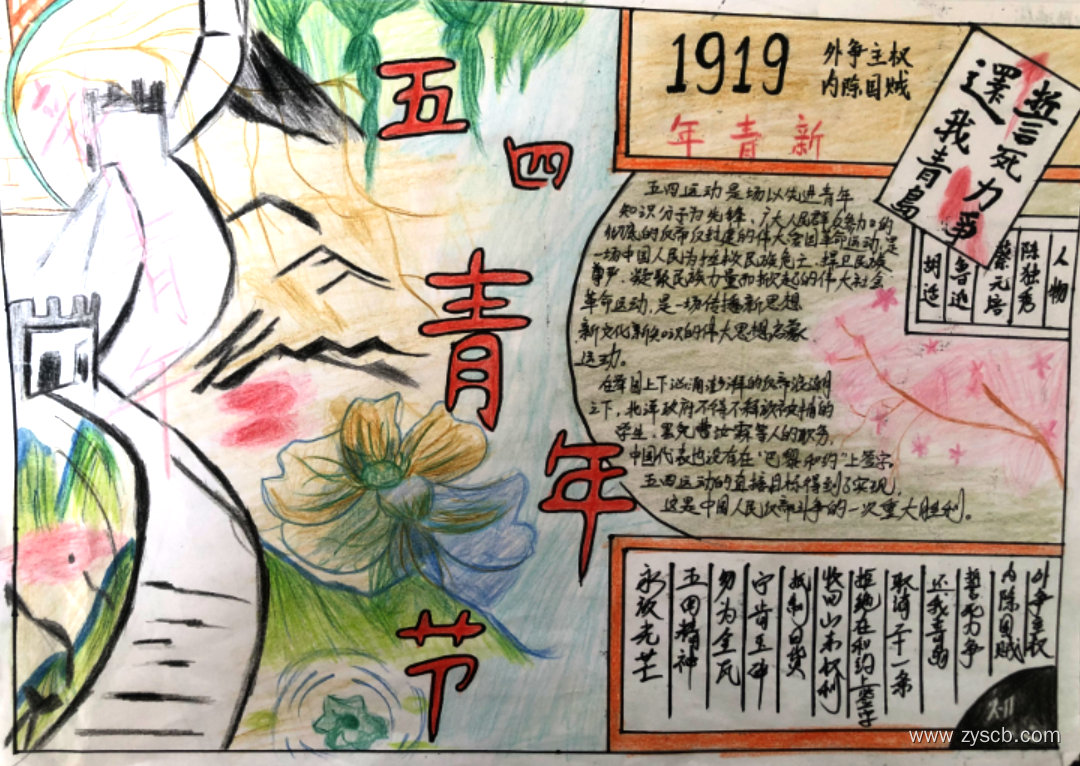 五四青年节
1919
外争主权
内除国贼
新青年
誓死力争
還我青島
人物
陈独秀
蔡元培
鲁迅
胡适
五四运动是场以先进青年
知识分子为先锋，广大人民群众参加的
彻底的反帝反封建的伟大爱国革命运动，是
一场中国人民为拯救民族危亡、捍卫民族
尊严、凝聚民族力量而掀起的伟大社会
革命运动，是一场传播新思想
新文化新知识的伟大思想启蒙
运动。
在举国上下汹涌澎湃的反帝浪潮
之下，北洋政府不得不释放被捕的
学生，罢免曹汝霖等人的职务，
中国代表也没有在“巴黎和约”上签字
五四运动的直接目标得到了实现，
这是中国人民反帝斗争的一次重大胜利。
外争主权
内除国贼
誓死力争
还我青岛
取消二十一条
拒绝在和约上签字
收回山东权利
抵制日货
宁肯玉碎
勿为全瓦
五四精神
永放光芒
www.zyscb.com